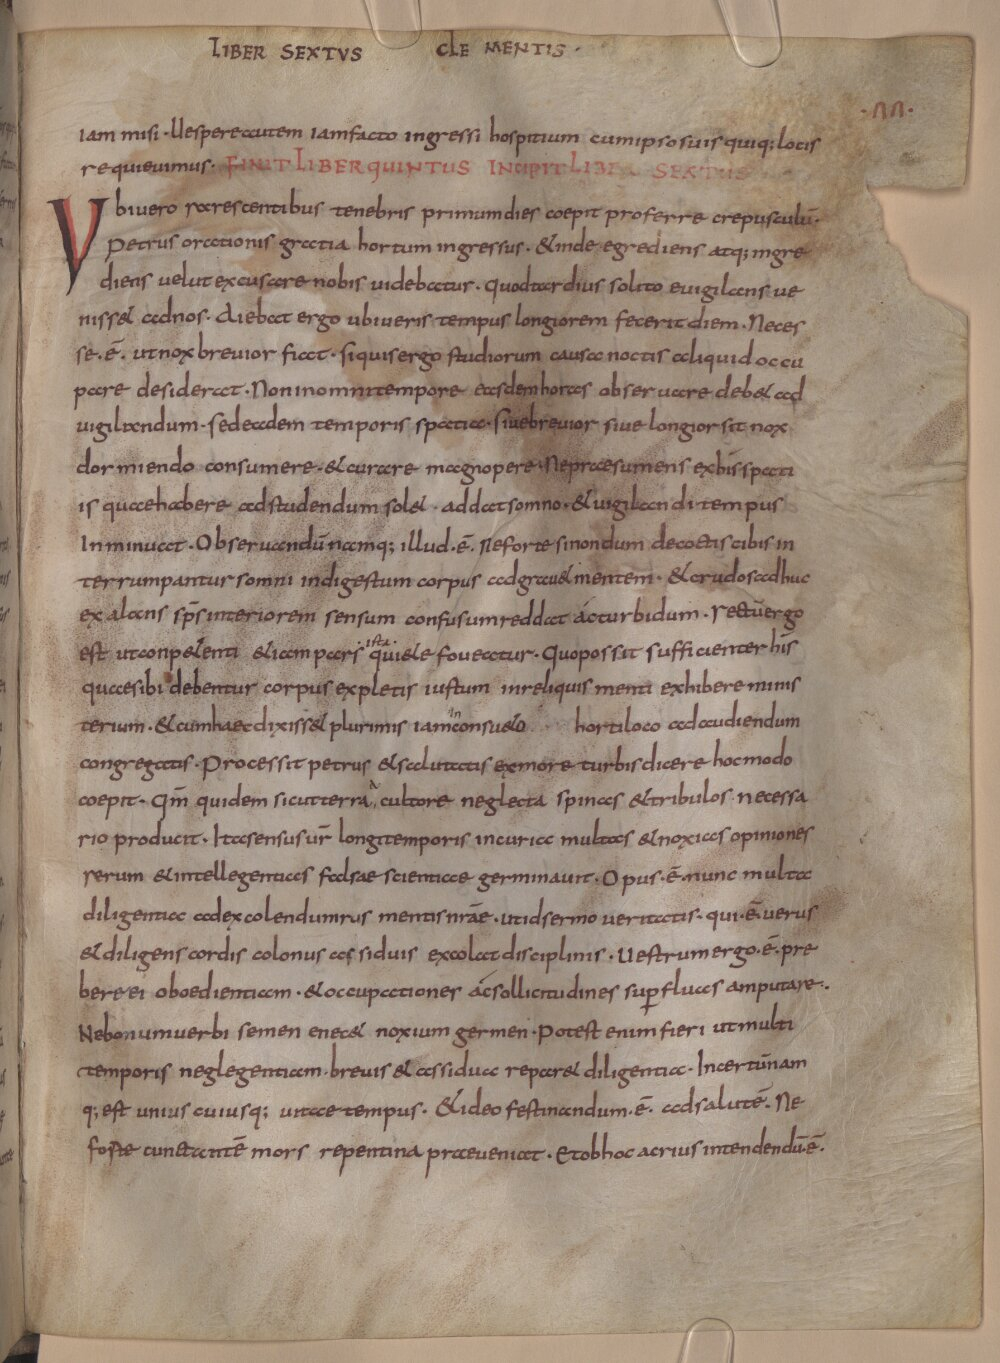 LIBER SEXTVS CLEMENTIS ·
iam misi · Uespere autem iam facto ingressi hospitium cum ipso suis quiq; locis
requieuimus · FINIT LIBER QUINTUS INCIPIT LIBER SEXTUS
Vbi vero rarescentibus tenebris primum dies coepit proferre crepusculū ·
Petrus orationis gratia hortum ingressus · & inde egrediens atq; ingre
diens velut excusare nobis uidebatur · Quod tardius solito euigilans ve
niss& ad nos · Aiebat ergo ubi ueris tempus longiorem fecerit diem · Neces
se · ē · ut nox brevior fiat · si quis ergo studiorum causa noctis aliquid occu
pare desiderat · Non in omni tempore easdem horas observare deb& ad
uigilandum · sed eadem temporis spatia · sive brevior sive longior sit nox
dormiendo consumere · & curare magnopere · Ne praesumens ex hīs spati
is quae habere ad studendum sol& · addat somno · & uigilandi tempus
Inminuat · Obseruandū namq; illud · ē · Ne forte si nondum decoctis cibis in
terrumpantur somni indigestum corpus ad grau& mentem · & crudos adhuc
exalans sps̄ interiorem sensum confusum reddat ác turbidum · rectū ergo
est ut conpetenti & iam pars · ista · qui&e foueatur · Quo possit sufficienter hīs
quae sibi debentur corpus expletis iustum in reliquis menti exhibere minis
terium · & cum haec dixiss& plurimis iam in consu&o horti loco ad audiendum
congregatis · Processit petrus & salutatis ex more turbis dicere hoc modo
coepit · Qm̄ quidem sicut terra a cultore neglecta spinas & tribulos necessa
rio producit · Ita sensus ur̄ longi temporis incuria multas & noxias opiniones
rerum & intellegentias falsae scientiae germinauit · Opus · ē · nunc multa
diligentia ad excolendum rus mentis nrāe · ut id sermo ueritatis · qui · ē · verus
& diligens cordis colonus assiduis excolat disciplinis · Uestrum ergo · ē · pre
bere ei oboedientiam · & occupationes ác sollicitudines sup̄fluas amputare ·
Ne bonum uerbi semen enec& noxium germen · Potest enim fieri ut multi
temporis neglegentiam · brevis & assidua repar& diligentia · Incertū nam
q; est unius cuiusq; uitae tempus · & ideo festinandum · ē · ad salutē · Ne
forte cunctantē mors repentina praeueniat · Et ob hoc acrius intendendū · ē ·